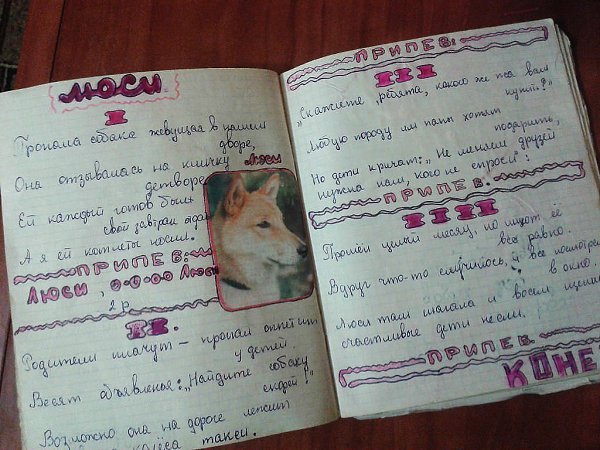 ЛЮСИ
I
Пропала собака живущая в нашем
дворе,
Она отзывалась на кличку Люси
детворе
Ей каждый готов был
свой завтрак отдат
А я ей котлеты носил.
ПРИПЕВ:
Люси, о-о-о-о Люси
2 р
II.
Родители плачут - пропал аппетит
у детей
Весят объявленья: „Найдите собаку
скорей!"
Возможно она на дороге лежит
колёса такси.
ПРИПЕВ:
III
„Скажите, ребята, какого же пса вам
купит?"
Любую породу им папы хотят
подарить,
Но дети кричат: „Не меняем друзей
нужна нам, кого не спроси":
ПРИПЕВ:
IIII
Прошёл целый месяц, но ищют её
всё равно.
Вдруг что-то случилось, и все посмотрел
в окно.
Люси там шагала и восем щени
счастливые дети несли.
ПРИПЕВ
КОНЕ